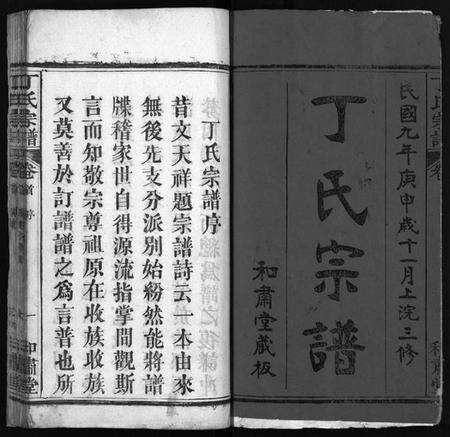 民國九年庚申歲十一月上浣三修
丁氏宗譜
和肅堂藏板
丁氏宗譜序
昔文天祥題宗譜詩云一本由來
無後先支分派別始粉然能將譜
牒稽家世自得源流指掌間觀斯
言而知敬宗尊祖原在收族收族
又莫善於訂譜譜之為言普也所
丁氏宗譜
卷首
序
一
和肅堂